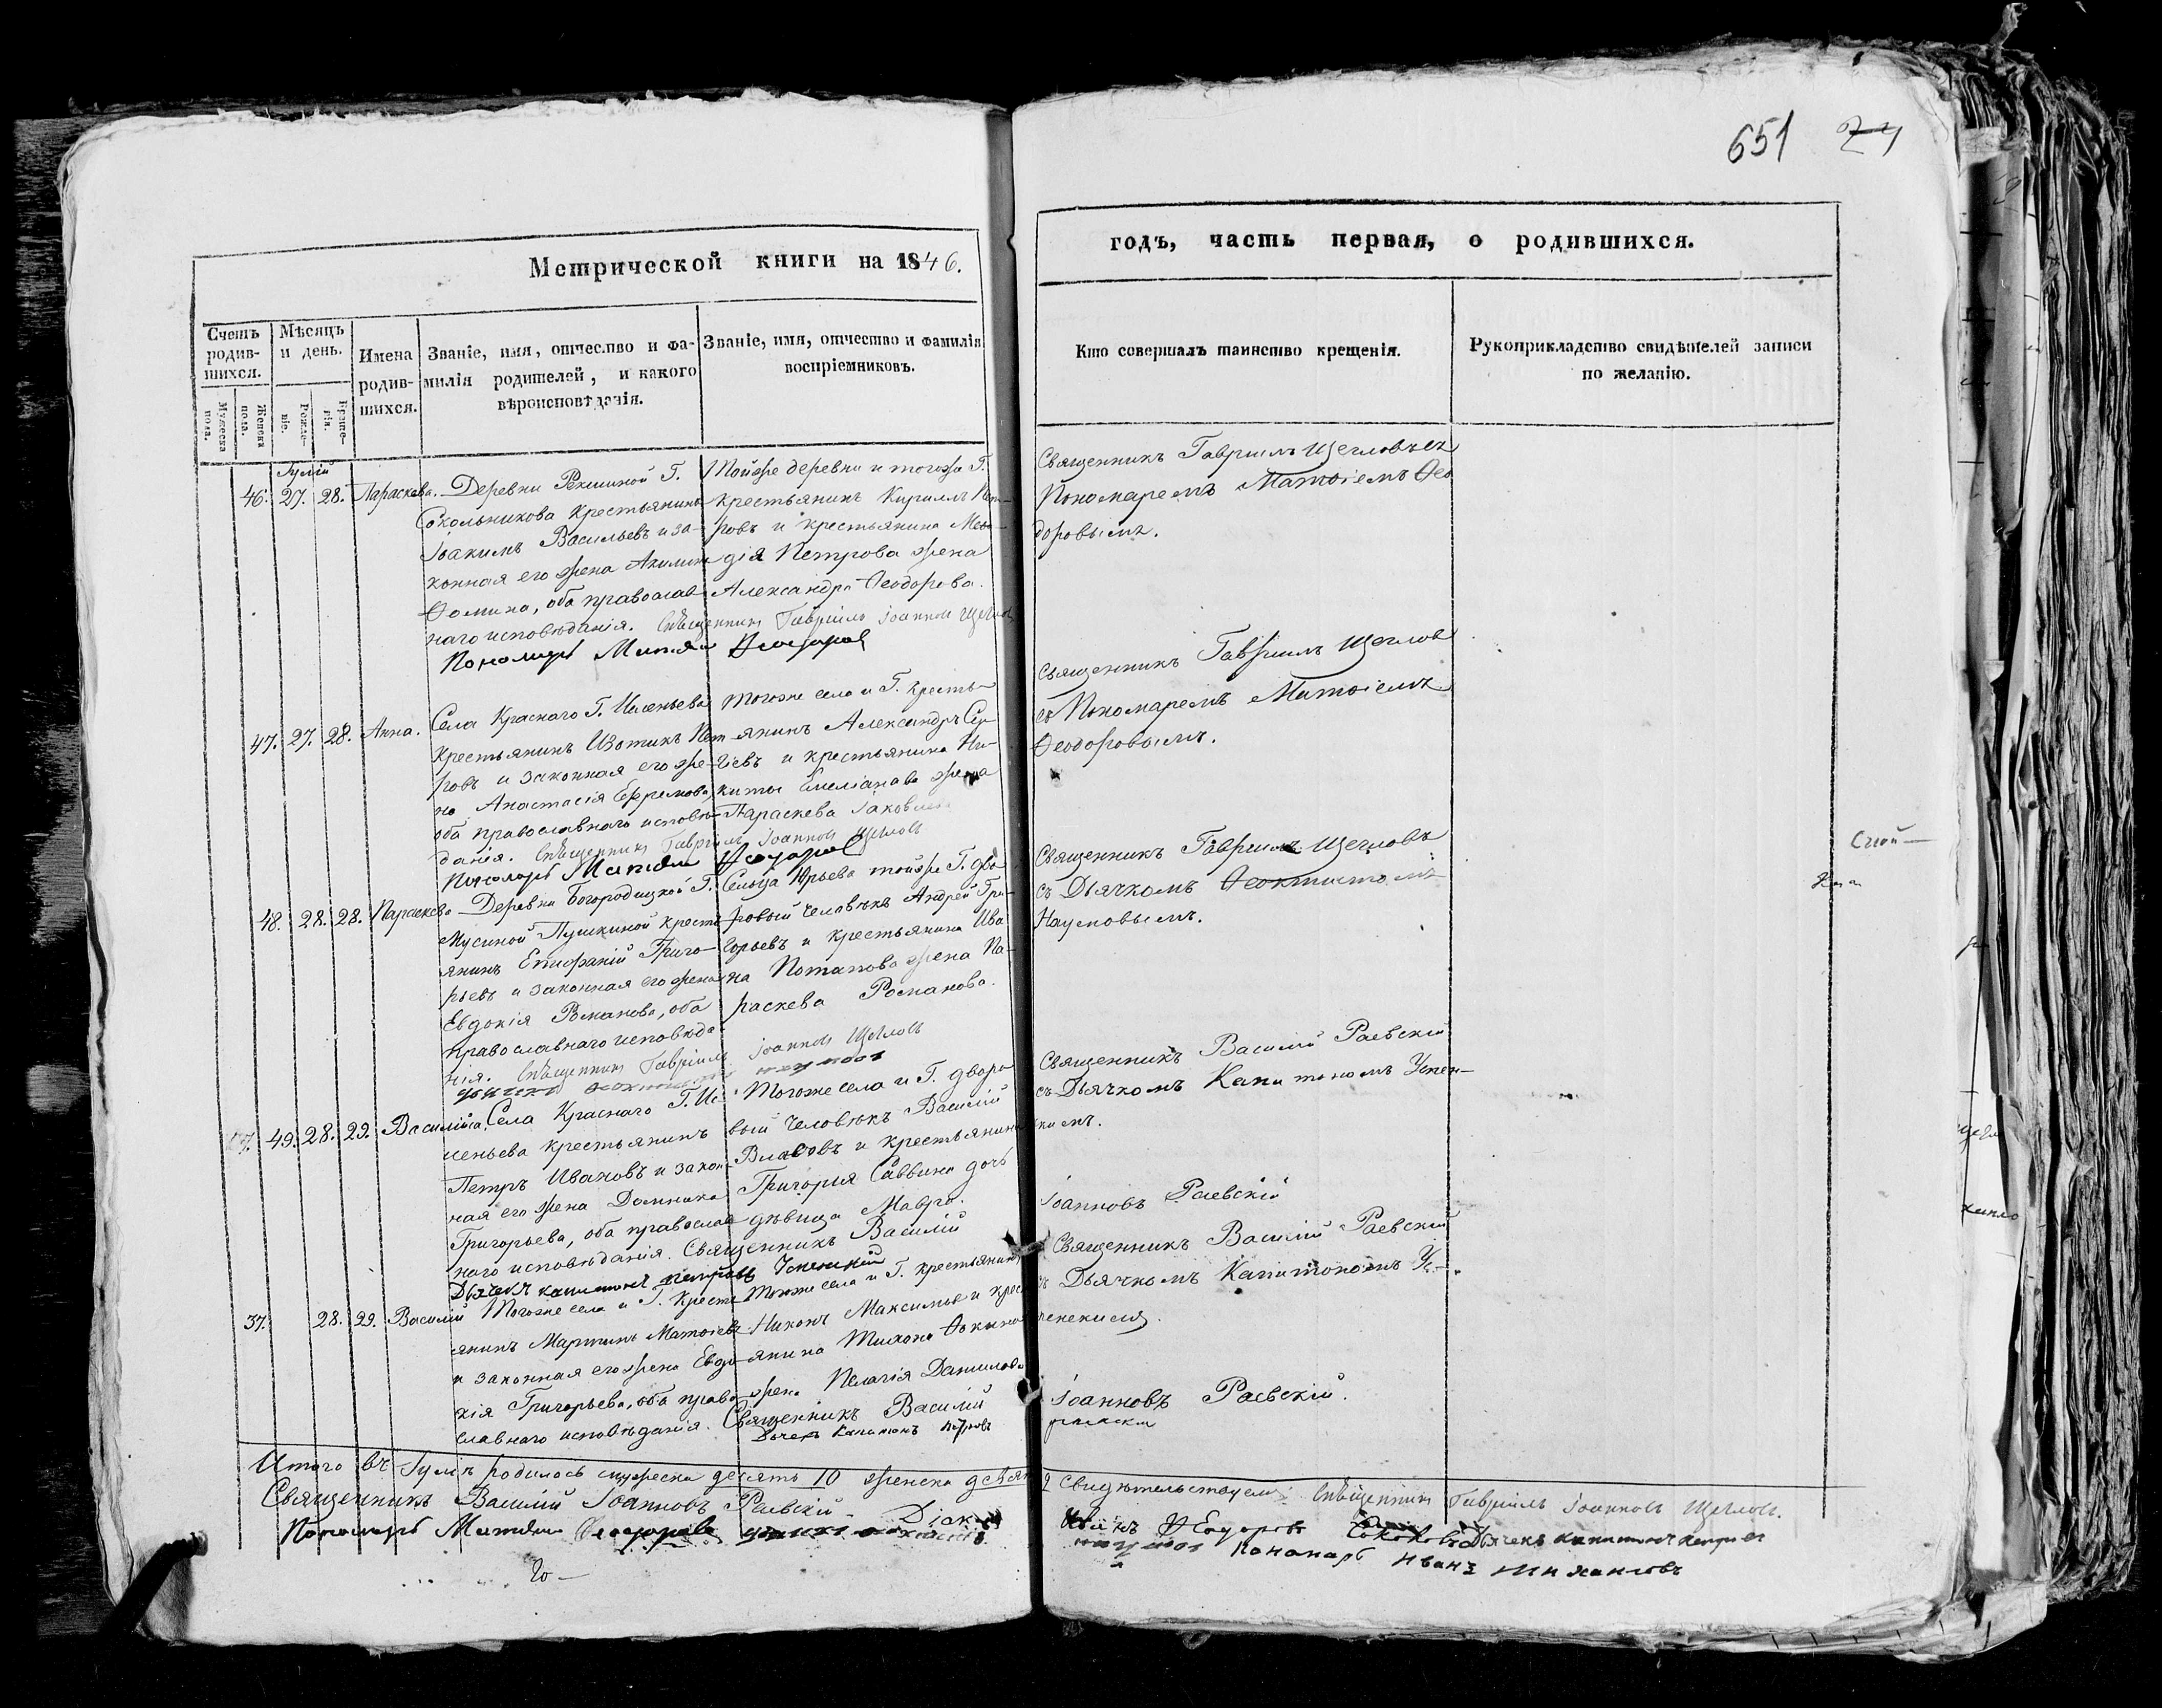 651
Метрической книги на 1846.
годъ, часть первая, о родившихся.
Счетъ родив-шихся.
Мѣсяцъ и день.
Имена родив-шихся.
Званіе, имя, отчество и фа-
милія родителей, и какого
вѣроисповѣданія.
Званіе, имя, отчество и фамилія
воспріемниковъ.
Кто совершалъ таинство крещенія.
Рукоприкладство свидѣтелей записи
по желанію.
Мужеска пола.
Женска пола.
Рожде-ніе.
Креще-нія.
Іулій
46. 27. 28. Параскева. Деревни Рекшиной Г.
Сокольникова крестьянинъ
Іоакимъ Васильевъ и за-
конная его жена Акилина
Ѳомина, оба православ
наго исповѣданія. Священникъ Гавріилъ Іоанновъ Щегловъ
Пономарь Матѳій Ѳеодоров
Тойже деревни и тогоже Г.
крестьянинъ Кириллъ Пет-
ровъ и крестьянина Меѳо-
дія Петрова жена
Александра Ѳеодорова.
Священникъ Гавріилъ Щегловъ съ
Пономаремъ Матѳіемъ Ѳео
доровымъ.
47. 27. 28. Анна. Села Краснаго Г. Исленьева
крестьянинъ Изотикъ Пет-
ровъ и законная его же-
на Анастасія Ефремова,
оба православнаго исповѣ-
данія. Священникъ Гавріилъ Іоанновъ Щегловъ
Пономарь Матѳій Ѳеодоров
Тогоже села и Г. кресть-
янинъ Александръ Сер-
гіевъ и крестьянина Ни-
киты Емеліанова жена
Параскева Іаковлева
Священникъ Гавріилъ Щеглов
съ Пономаремъ Матѳіемъ
Ѳеодоровымъ.
48. 28. 28. Параскева Деревни Богородицкой Г.
Мусиной Пушкиной кресть
янинъ Епифаній Григо-
рьевъ и законная его жена
Евдокія Романова, оба
православнаго исповѣда
нія. Священникъ Гавріилъ Іоанновъ Щегловъ
Сельца Юрьева тойже Г. дво
ровый человѣкъ Андрей Гри-
горьевъ и крестьянина Ива
на Потапова жена Па-
раскева Романова.
Священникъ Гавріилъ Щегловъ
съ Дьячкомъ Ѳеоктистомъ
Наумовымъ.
49. 28. 29. Василиса. Села Краснаго Г. Ис-
леньева крестьянинъ
Петръ Ивановъ и закон-
ная его жена Домника
Григорьева, оба православ
наго исповѣданія. Священникъ Василій
Дьячекъ Капитонъ Петровъ Успенскій
Тогоже села и Г. дворо
вый человѣкъ Василій
Власовъ и крестьянина
Григорія Саввина дочь
дѣвица Мавра.
Священникъ Василій Раевскій
съ Дьячкомъ Капитономъ Успен-
скимъ.
Іоанновъ Раевскій
37. 28. 29. Василій Тогоже села и Г. кресть
янинъ Мартинъ Матѳіевъ
и законная его жена Евдо-
кія Григорьева, оба право-
славнаго исповѣданія. Священникъ Василій
Дьячекъ Капитонъ Петровъ
Тогоже села и Г. крестьянинъ
Никонъ Максимовъ и крест
янина Тихона Ѳокина
жена Пелагія Данилова
Священникъ Василій Раевскій
съ Дьячкомъ Капитономъ Ус-
пенскимъ.
Іоанновъ Раевскій.
Итого въ Іулѣ родилось мужеска десять 10 женска девять
Свидѣтельствуемъ: Священникъ Гавріилъ Іоанновъ Щегловъ.
Священникъ Василій Іоанновъ Раевскій
Пономарь Матѳій Ѳеодоровъ
Дьячекъ Капитонъ Петров
Пономарь Иванъ Михаиловъ